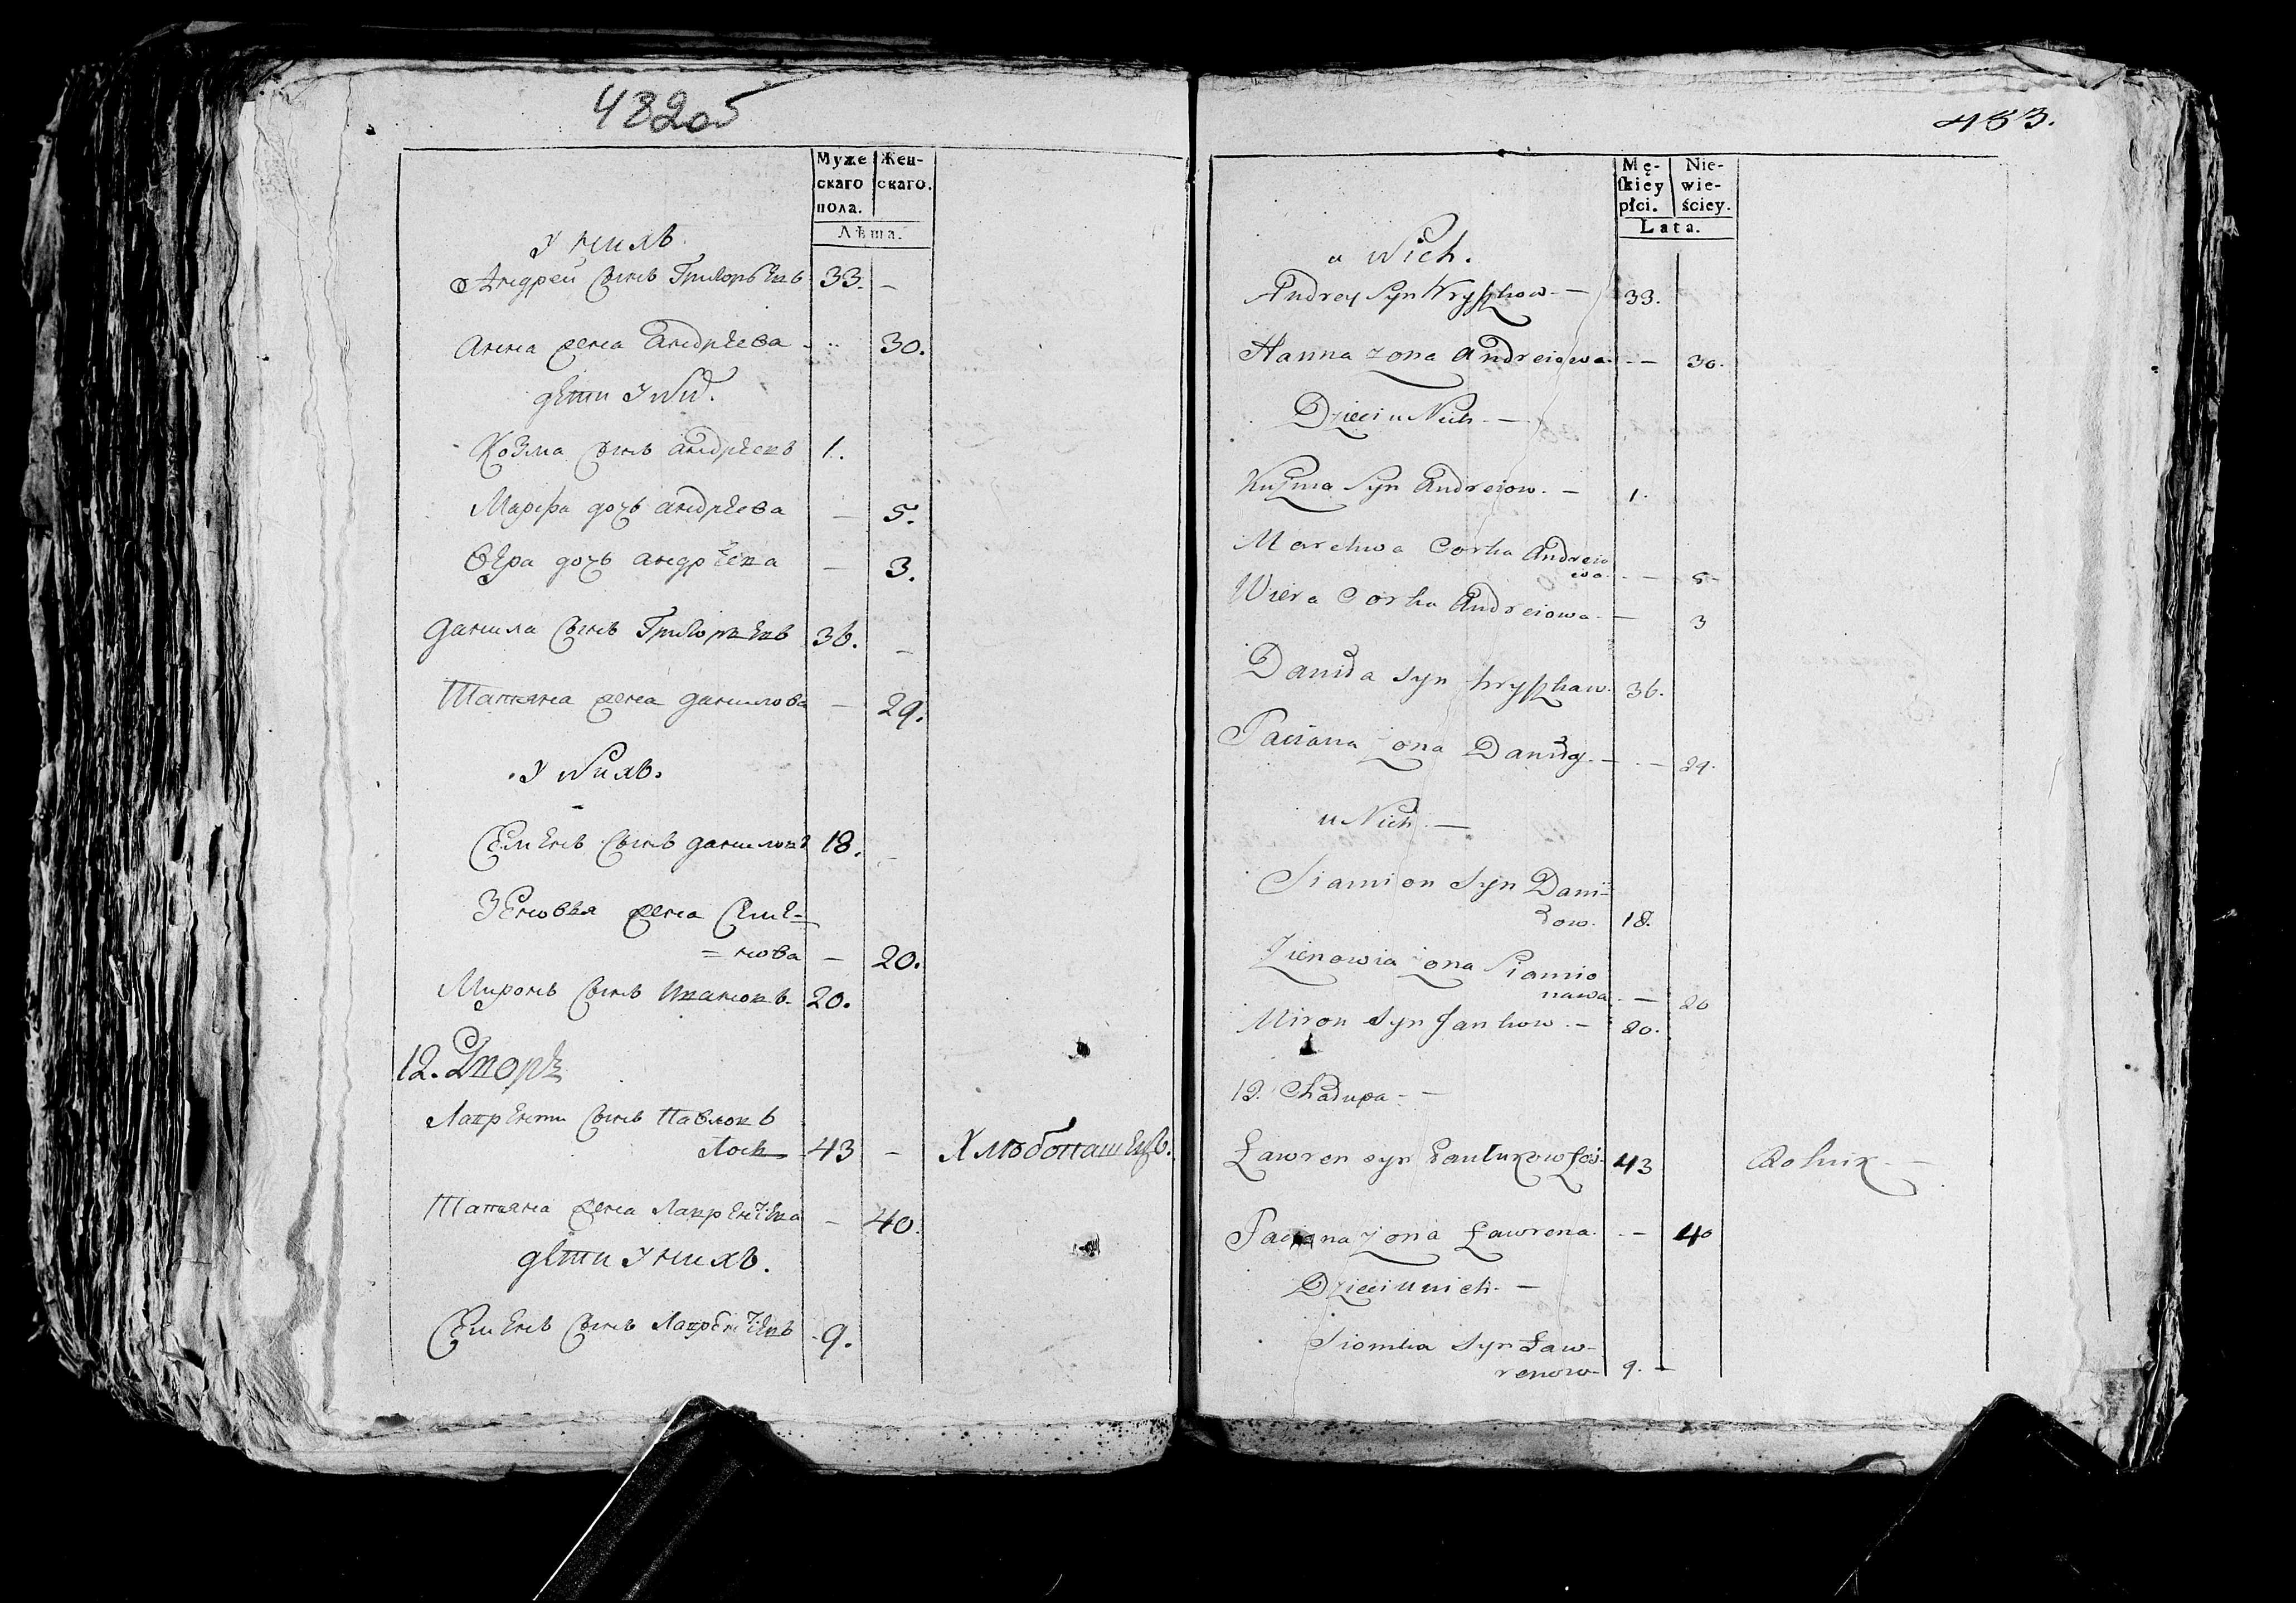 482об
Муже
скаго
пола.
Жен-
скаго.
Лѣта.
у нихъ
Андрей сынъ Григорьевъ 33. –
Анна жена Андрѣева – 30.
дѣти у нихъ.
Козма сынъ Андрѣевъ 1.
Марфа дочь Андрѣева – 5.
Вѣра дочь Андрѣева – 3.
Данила сынъ Григорьевъ 36. –
Татьяна жена Данилова – 29.
у нихъ.
Семенъ сынъ Даниловъ 18. –
Зеновья жена Семе-
= нова – 20.
Миронъ сынъ Ивановъ 20.
12. Дворъ
Лаврентій сынъ Павловъ
Лось 43 – Хлѣбопашецъ.
Татьяна жена Лаврентіева – 40.
дѣти у нихъ.
Семенъ сынъ Лаврентіевъ 9.
483.
Mę-
ſkiey
płci.
Nie-
wie-
ściey.
Lata.
u Nich.
Andrey Syn Hryszkow – 33.
Hanna zona Andreiowa – 30.
Dzieci u Nich –
Kuzma Syn Andreiow. – 1.
Marchwa Corka Andreio
wa – 5
Wiera Corka Andreiowa – 3
Daniła syn hryszkow. 36.
Paciana zona Daniły – 29.
u Nich –
Siamion Syn Dani-
łow. 18.
Zienowia zona Siamio
nowa – 20
Miron Syn Jankow. – 20.
12. Chałupa –
Ławren syn Paulukow Łoś 43 Rolnik –
Paciana zona Ławrena. – 40
Dzieci u nich. –
Siomka Syn Ław-
renow 9. –